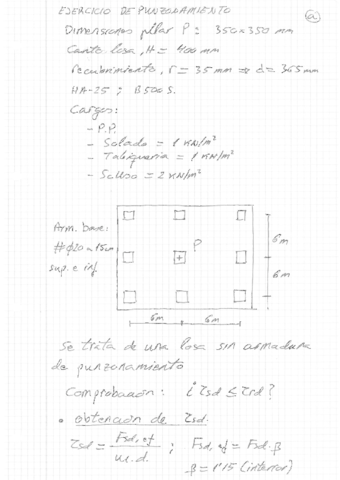 EJERCICIO DE PUNZONAMIENTO
a
Dimensiones pilar P: 350x350 mm
Canto losa, H = 400 mm
recubrimiento, r = 35 mm ⇒ d = 365 mm
HA-25 ; B500 S.
Cargas:
- P.P.
- Solado = 1 KN/m²
- Tabiquería = 1 KN/m²
- SC uso = 2 KN/m²
Arm. base:
#φ20 x 15cm
sup. e inf.
P
6m
6m
6m
6m
Se trata de una losa sin armadura
de punzonamiento
Comprobación: ¿ τsd ≤ τrd ?
• obtención de τsd.
τsd = Fsd,ef / u.d. ; Fsd,ef = Fsd.β
β = 1'15 (interior)